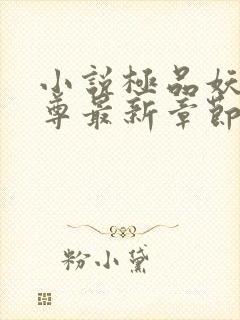 小說極品妖
尊最新章節
粉小黛